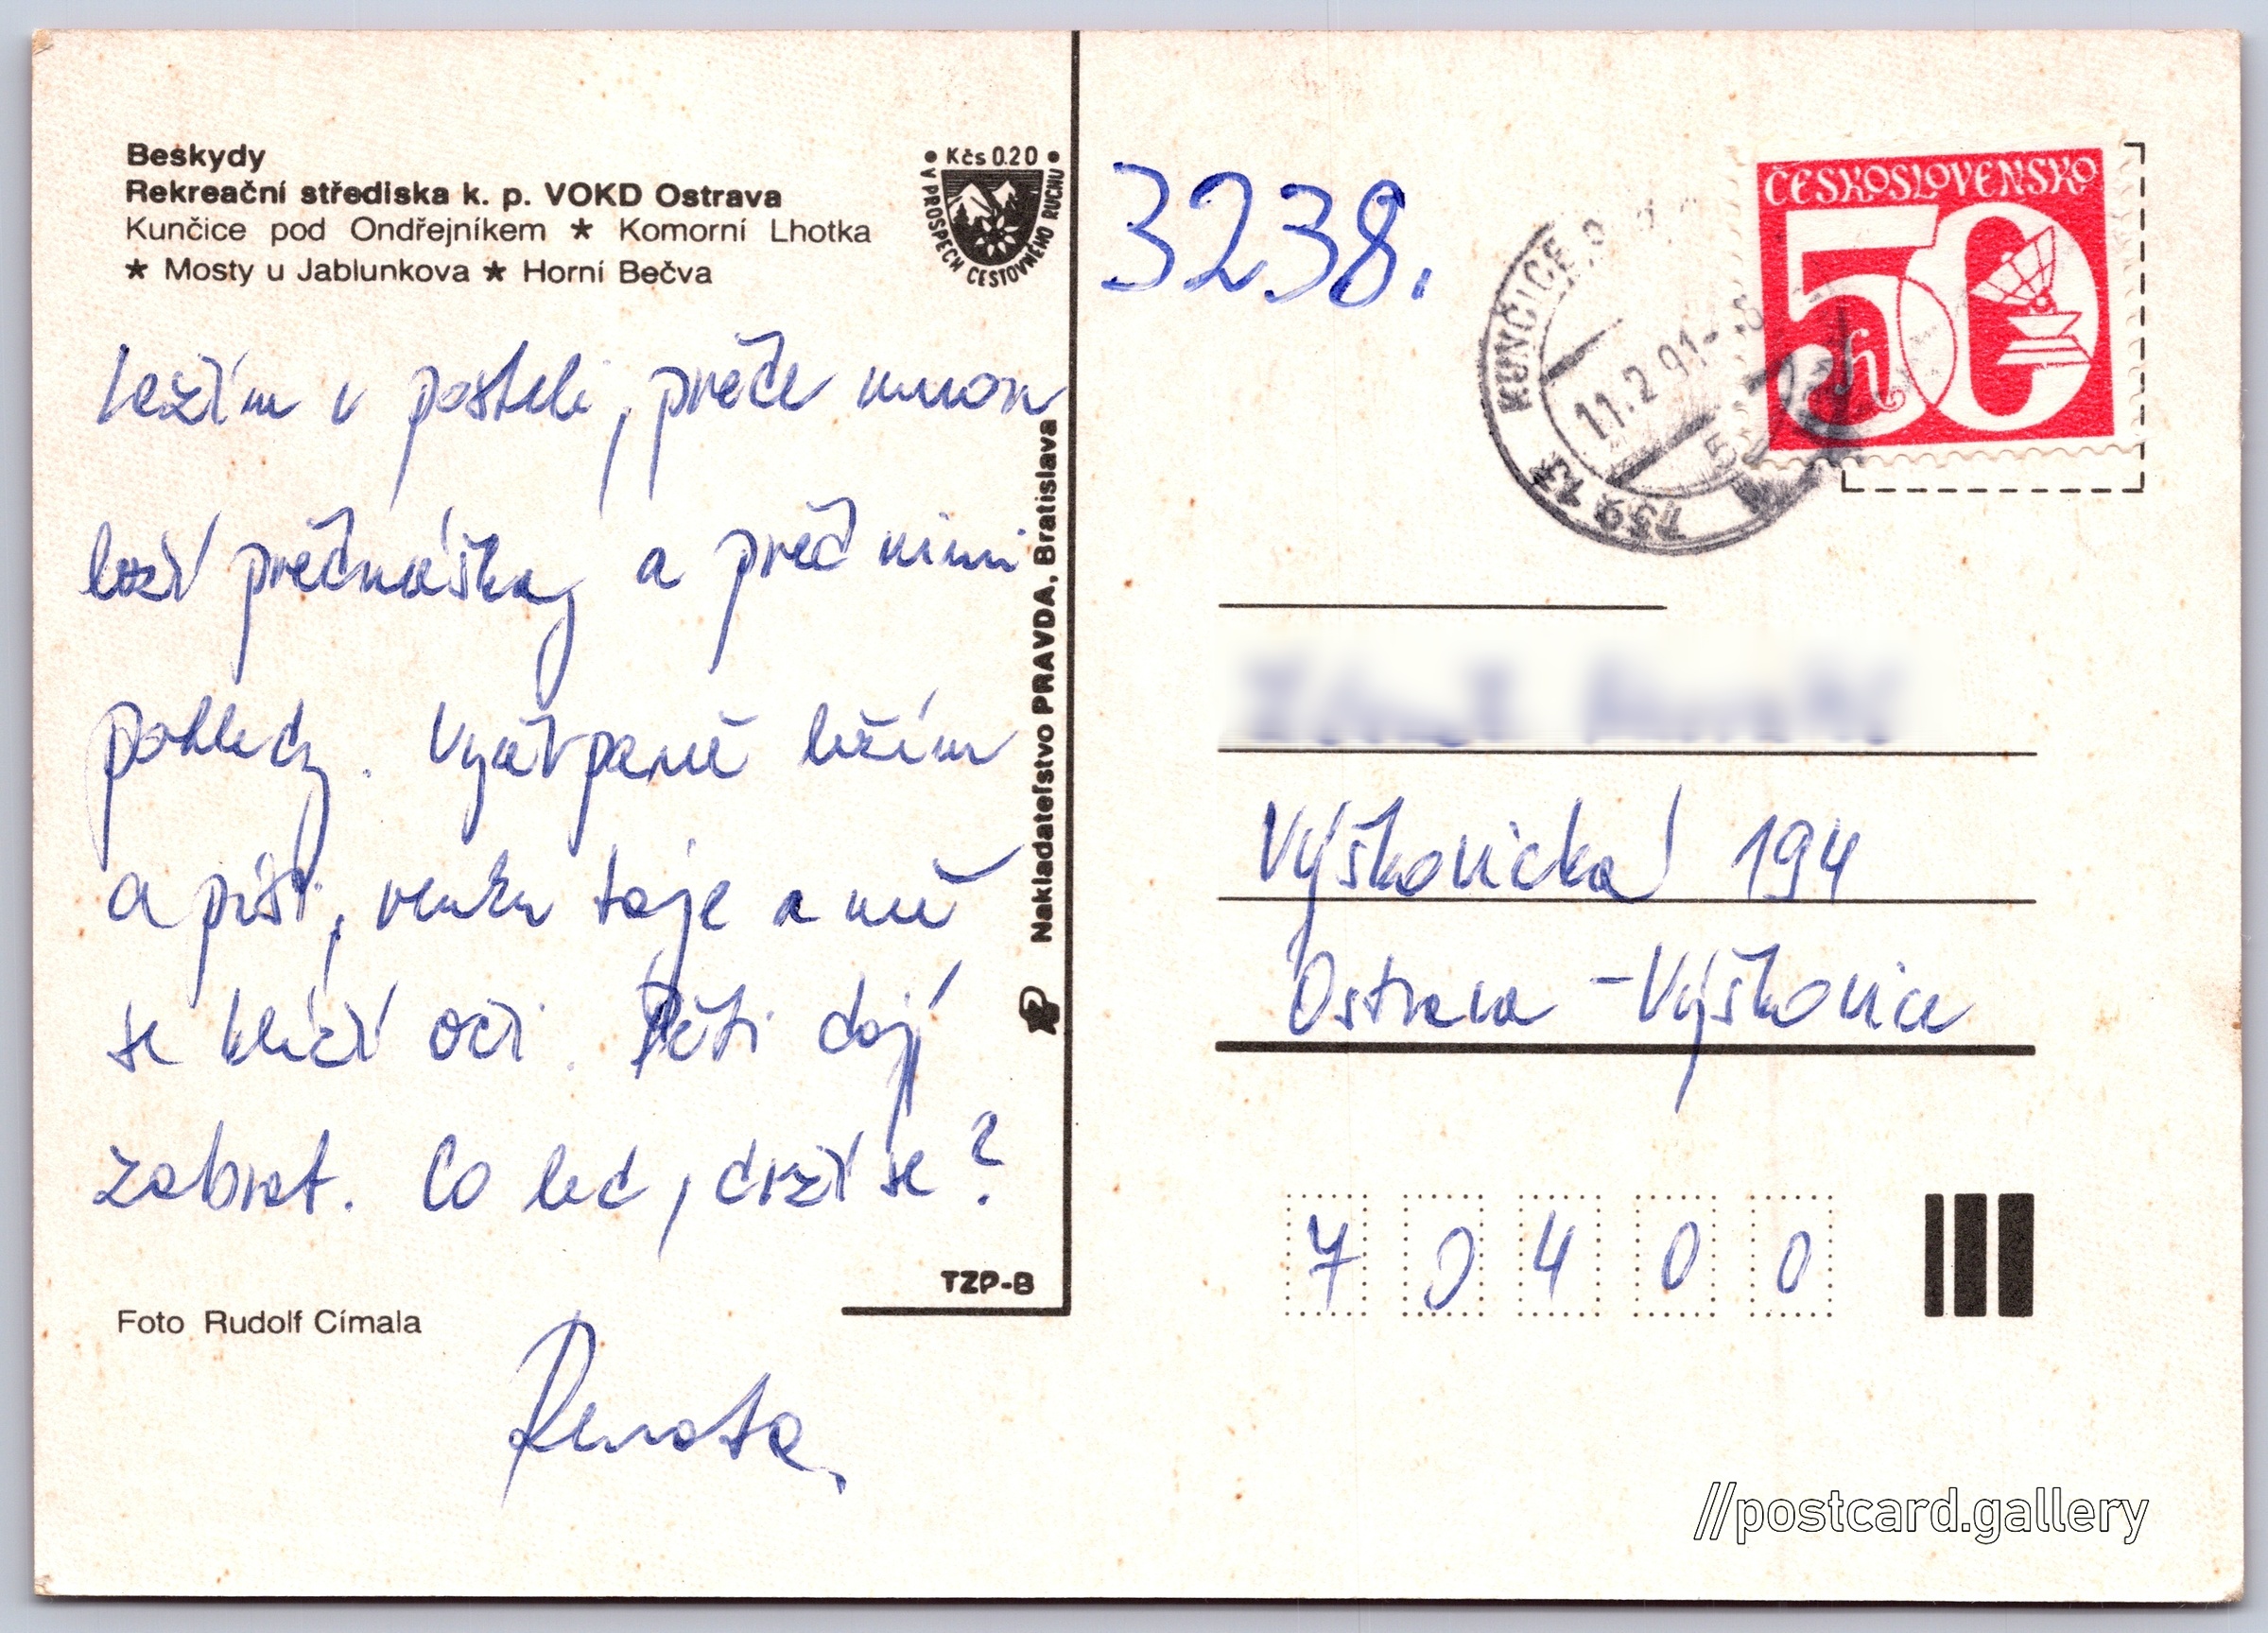 Beskydy
Rekreační střediska k. p. VOKD Ostrava
Kunčice pod Ondřejníkem ★ Komorní Lhotka
★ Mosty u Jablunkova ★ Horní Bečva
• Kčs 0.20 •
V PROSPECH CESTOVNÉHO RUCHU
Ležím v posteli, přede mnou
leží přednášky a před nimi
pohledy. Vyčerpaně ležím
a píši, venku taje a mě
se klíží oči. Děti dají
zabrat. Co led, drží se?
Renata
Nakladateľstvo PRAVDA, Bratislava
TZP-B
Foto Rudolf Címala
3238.
ČESKOSLOVENSKO
50 h
KUNČICE P.
11.2.91
739 13
Výškovická 194
Ostrava - Výškovice
70400
//postcard.gallery